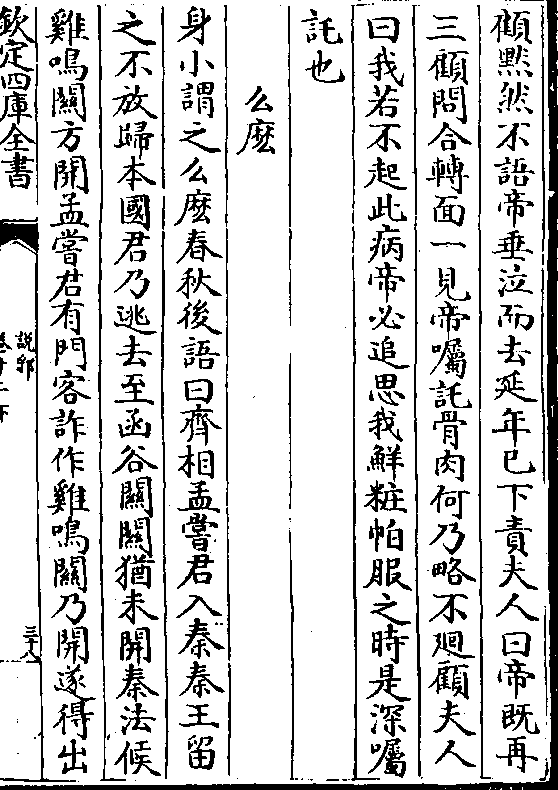 顧黙然不語帝垂泣而去延年已下責夫人曰帝既再
三顧問合轉面一見帝囑託骨肉何乃略不𢌞顧夫人
曰我若不起此病帝必追思我鮮粧帕服之時是深囑
託也
么麽
身小謂之么麽春秋後語曰齊相孟嘗君入秦秦王留
之不放歸本國君乃逃去至函谷關關猶未開秦法候
雞鳴關方開孟嘗君有門客詐作雞鳴關乃開遂得出
欽定四庫全書
說郛
三十八